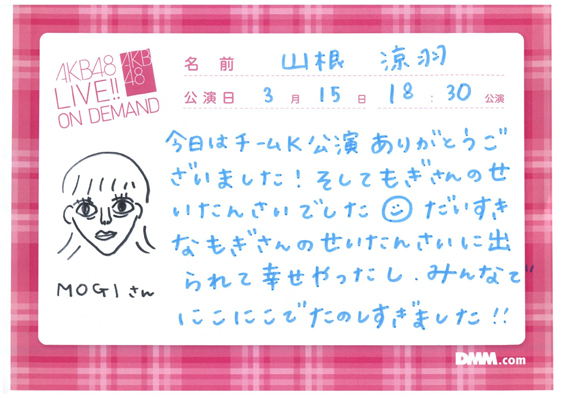 AKB48
LIVE!!
ON DEMAND
AKB
48
名前 山根 涼羽
公演日 3月15日 18:30公演
今日はチームK公演ありがとうご
ざいました！そしてもぎさんのせ
いたんさいでした だいすき
なもぎさんのせいたんさいに出
られて幸せやったし、みんなで
にこにこでたのしすぎました!!
MOGIさん
DMM.com